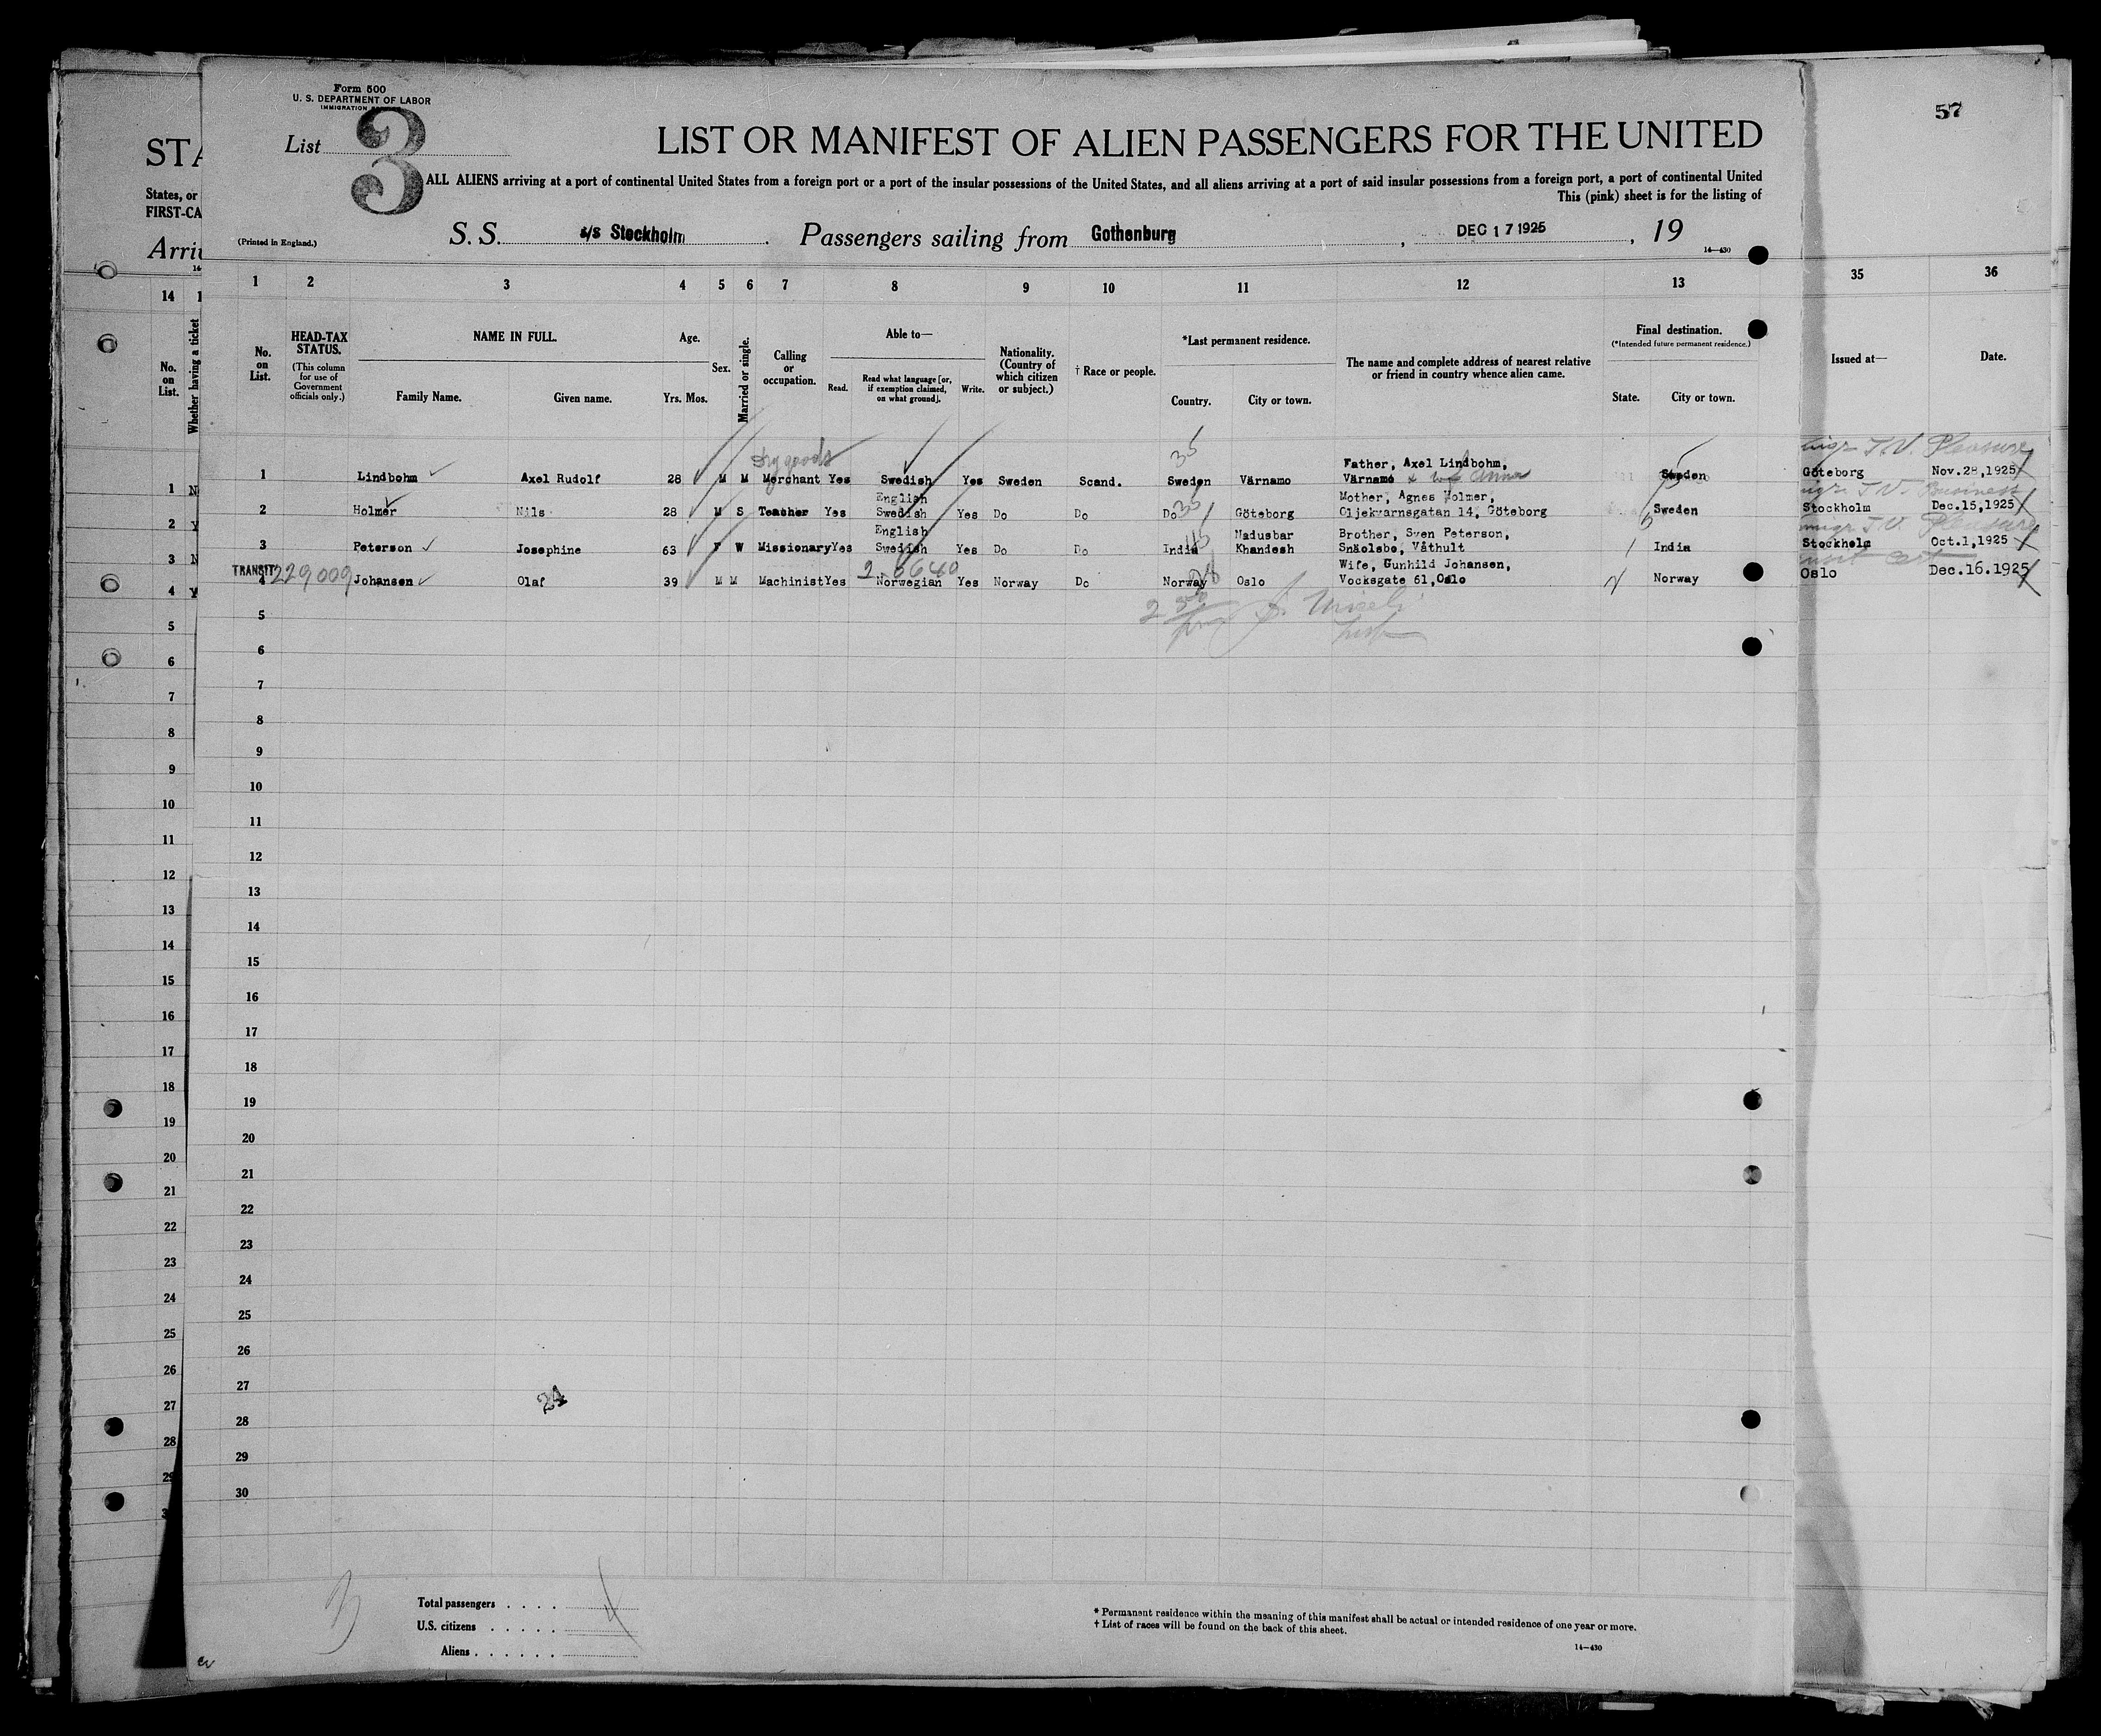 Form 500
U. S. DEPARTMENT OF LABOR
IMMIGRATION
List 3
LIST OR MANIFEST OF ALIEN PASSENGERS FOR THE UNITED
STA
57
ALL ALIENS arriving at a port of continental United States from a foreign port or a port of the insular possessions of the United States, and all aliens arriving at a port of said insular possessions from a foreign port, a port of continental United
States, or
This (pink) sheet is for the listing of
FIRST-CA
(Printed in England.)
S. S. s/s Stockholm. Passengers sailing from Gothenburg, DEC 17 1925, 19
Arri
14—430
1 2 3 4 5 6 7 8 9 10 11 12 13 35 36
14 1
No. on List.
Whether having a ticket
No. on List.
HEAD-TAX STATUS.
(This column for use of Government officials only.)
NAME IN FULL.
Family Name.
Given name.
Age.
Yrs. Mos.
Sex.
Married or single.
Calling or occupation.
Able to—
Read.
Read what language [or, if exemption claimed, on what ground].
Write.
Nationality. (Country of which citizen or subject.)
† Race or people.
*Last permanent residence.
Country.
City or town.
The name and complete address of nearest relative or friend in country whence alien came.
Final destination.
(*Intended future permanent residence.)
State.
City or town.
Issued at—
Date.
Dry goods
T.V. Pleasure
Father, Axel Lindbohm,
1 Lindbohm Axel Rudolf 28 M M Merchant Yes Swedish Yes Sweden Scand. Sweden Värnamo Värnamo & wife Anna Sweden Göteborg Nov.28,1925
English Mother, Agnes Holmer, T.V. Business
2 Holmer Nils 28 M S Teacher Yes Swedish Yes Do Do Do Göteborg Oljekvarnsgatan 14, Göteborg Sweden Stockholm Dec.15,1925
English Nadusbar Brother, Sven Peterson, T.V. Pleasure
3 Peterson Josephine 63 F W Missionary Yes Swedish Yes Do Do India Khandesh Snäolsbo, Våthult India Stockholm Oct.1,1925
Wife, Gunhild Johansen,
TRANSIT 229009
4 Johansen Olaf 39 M M Machinist Yes Norwegian Yes Norway Do Norway Oslo Vocksgate 61, Oslo Norway Oslo Dec.16.1925
1 N
2 Y
3 N
4 Y
5
6
7
8
9
10
11
12
13
14
15
16
17
18
19
20
21
22
23
24
25
26
27
28
29
5
6
7
8
9
10
11
12
13
14
15
16
17
18
19
20
21
22
23
24
25
26
27
28
29
30
24
Total passengers . . . . 4
U.S. citizens . . . . .
Aliens . . . . . .
* Permanent residence within the meaning of this manifest shall be actual or intended residence of one year or more.
† List of races will be found on the back of this sheet.
14—430